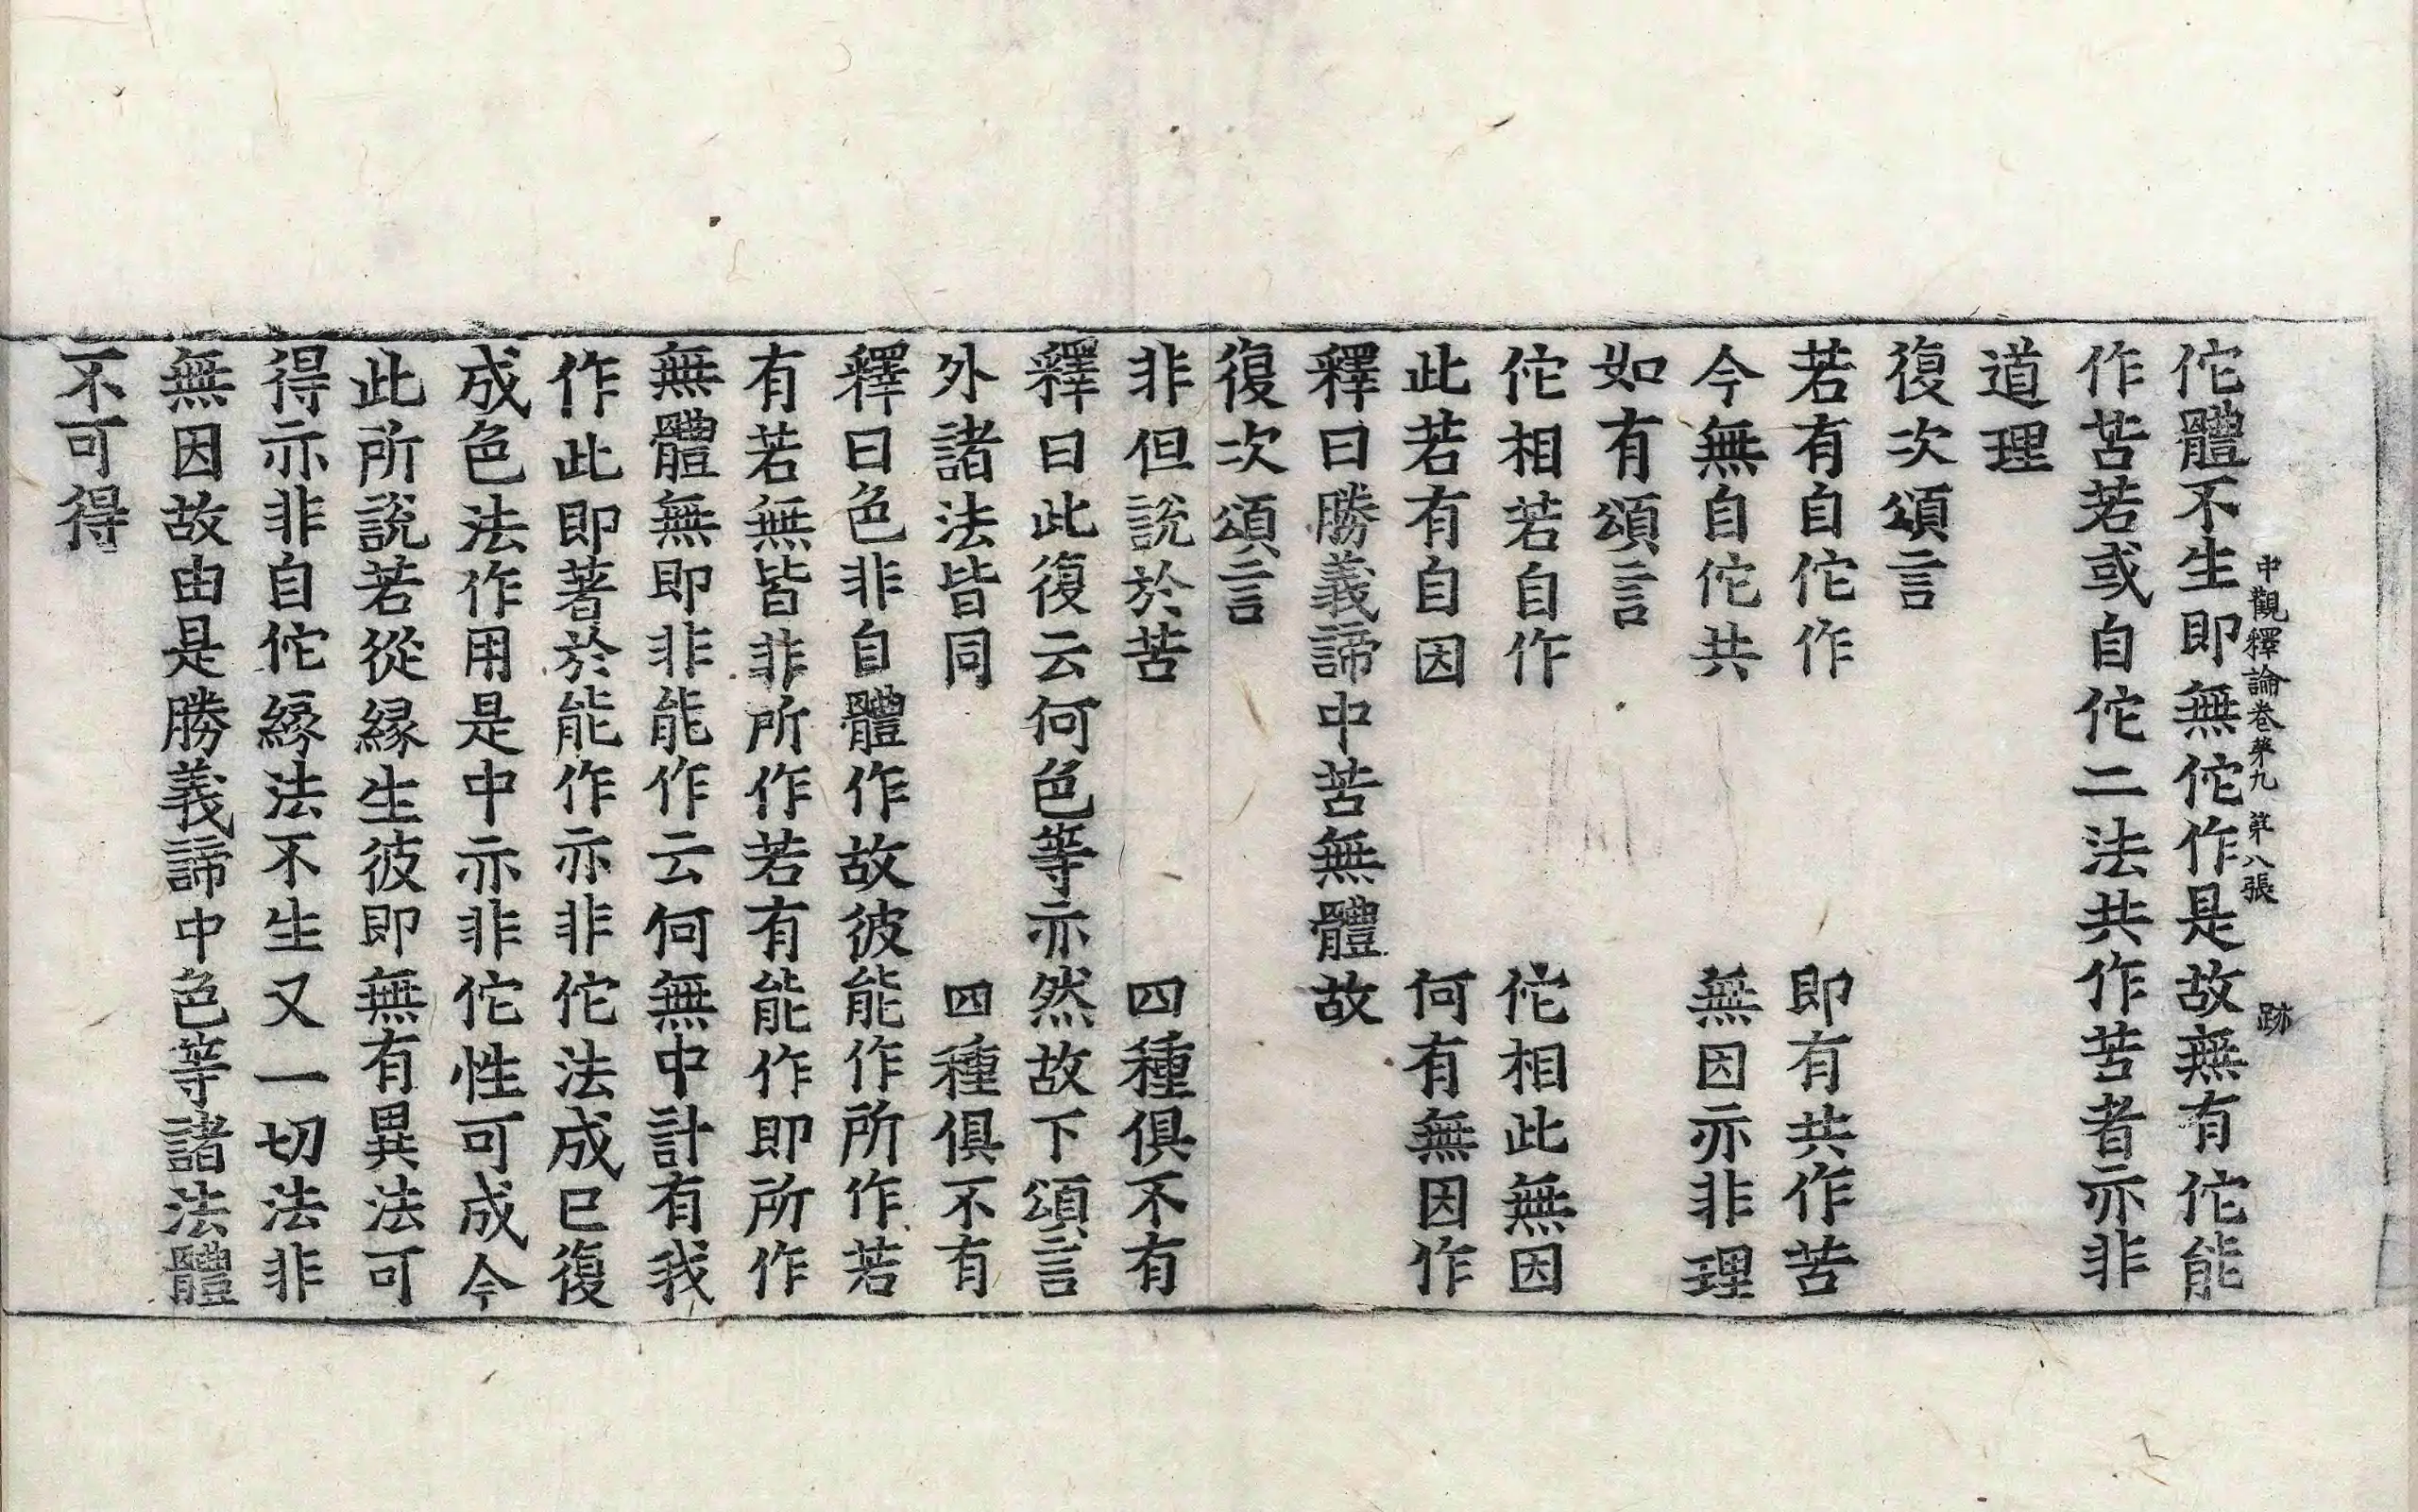 中觀釋論卷第九 第八張 跡
佗體不生即無佗作是故無有佗能
作苦若或自佗二法共作苦者亦非
道理
復次頌言
若有自佗作 即有共作苦
今無自佗共 無因亦非理
如有頌言
佗相若自作 佗相此無因
此若有自因 何有無因作
釋曰勝義諦中苦無體故
復次頌言
非但說於苦 四種俱不有
釋曰此復云何色等亦然故下頌言
外諸法皆同 四種俱不有
釋曰色非自體作故彼能作所作若
有若無皆非所作若有能作即所作
無體無即非能作云何無中計有我
作此即著於能作亦非佗法成已復
成色法作用是中亦非佗性可成今
此所說若從緣生彼即無有異法可
得亦非自佗緣法不生又一切法非
無因故由是勝義諦中色等諸法體
不可得